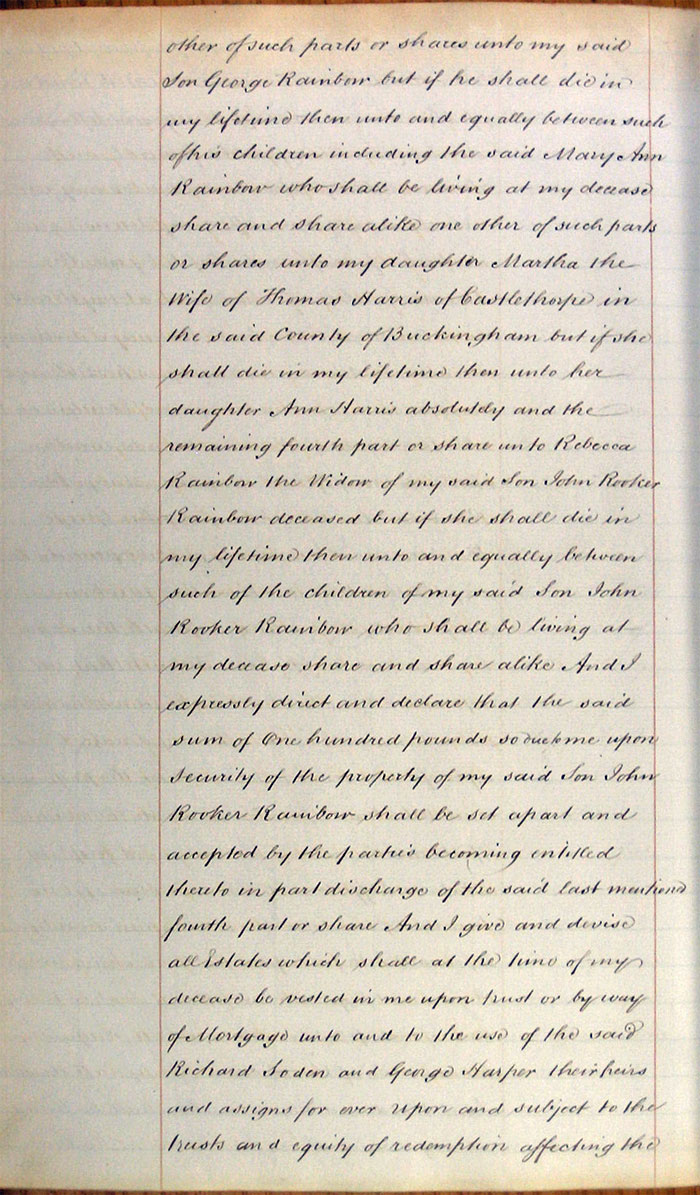 other of such parts or shares unto my said
Son George Rainbow but if he shall die in
my lifetime then unto and equally between such
of his children including the said Mary Ann
Rainbow who shall be living at my decease
share and share alike one other of such parts
or shares unto my daughter Martha the
Wife of Thomas Harris of Castlethorpe in
the said County of Buckingham but if she
shall die in my lifetime then unto her
daughter Ann Harris absolutely and the
remaining fourth part or share unto Rebecca
Rainbow the Widow of my said Son John Rooker
Rainbow deceased but if she shall die in
my lifetime then unto and equally between
such of the children of my said Son John
Rooker Rainbow who shall be living at
my decease share and share alike And I
expressly direct and declare that the said
sum of One hundred pounds so due to me upon
security of the property of my said Son John
Rooker Rainbow shall be set apart and
accepted by the parties becoming entitled
thereto in part discharge of the said last mentioned
fourth part or share And I give and devise
all Estates which shall at the time of my
decease be vested in me upon trust or by way
of Mortgage unto and to the use of the said
Richard Soden and George Harper their heirs
and assigns for ever Upon and subject to the
trusts and equity of redemption affecting the